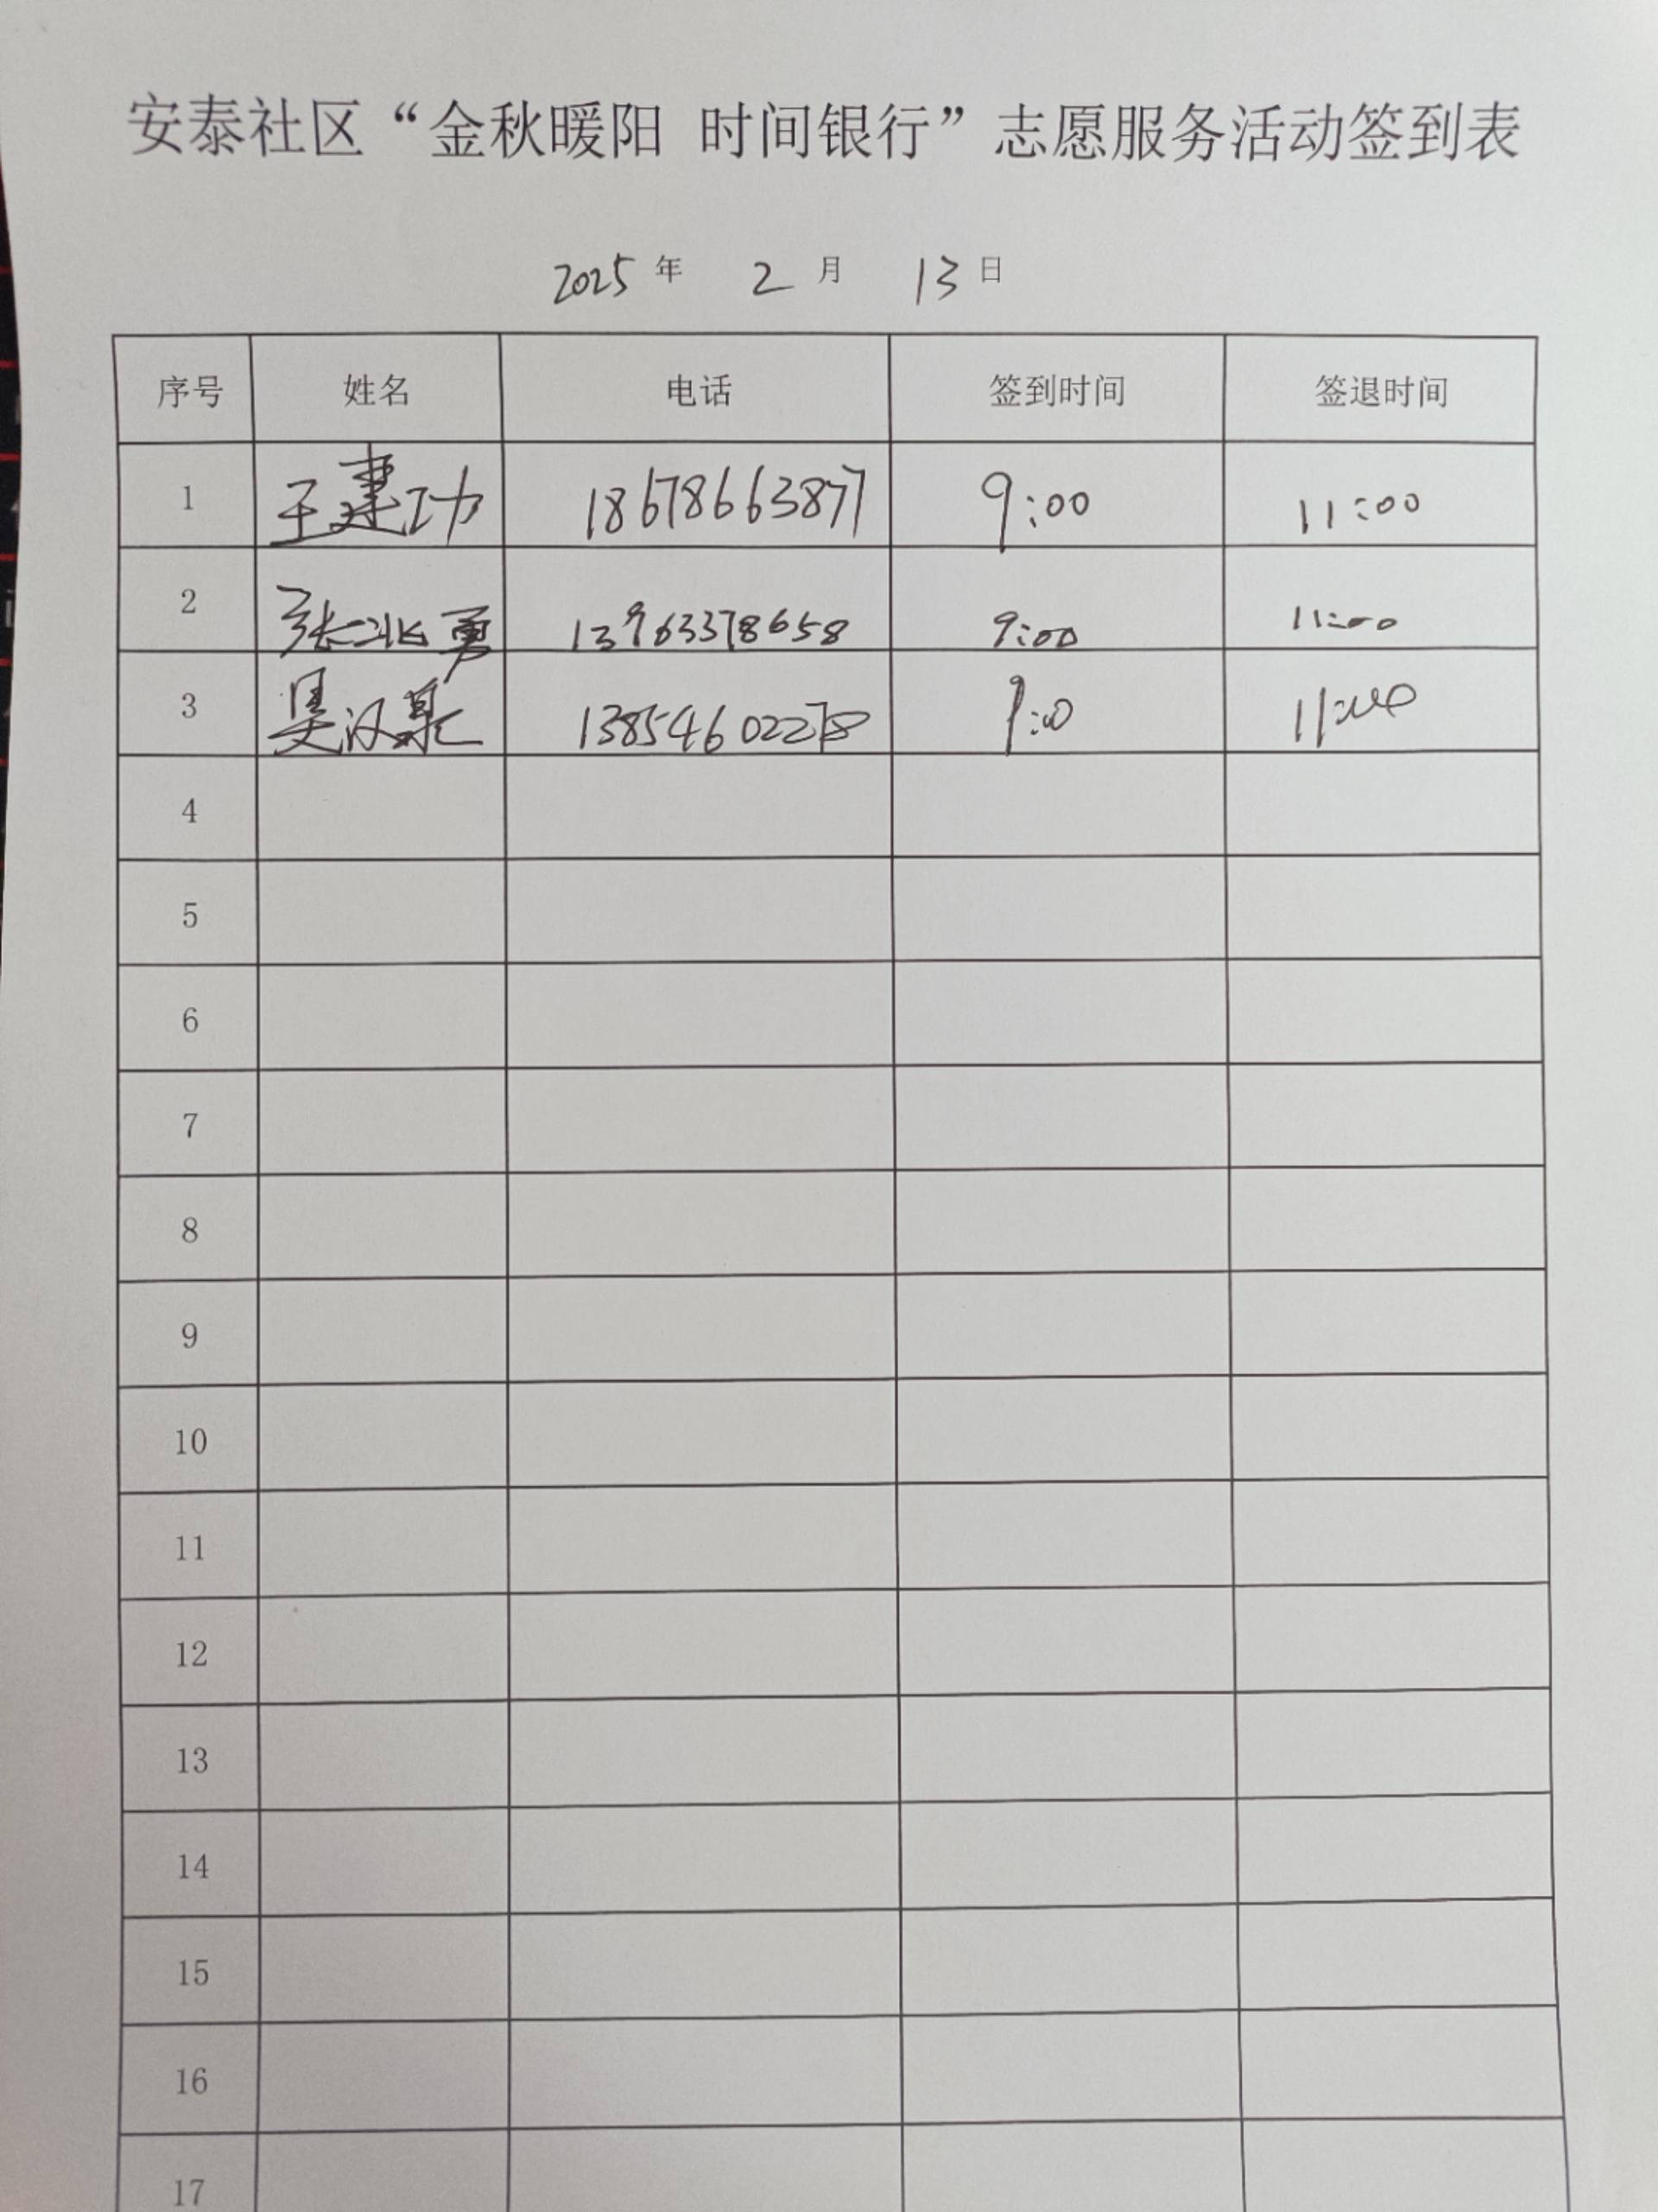 安泰社区“金秋暖阳 时间银行”志愿服务活动签到表
2025 年 2 月 13 日
序号 姓名 电话 签到时间 签退时间
1 王建功 18678663877 9:00 11:00
2 张兆勇 13963378658 9:00 11:00
3 吴汉泉 13854602278 9:00 11:00
4
5
6
7
8
9
10
11
12
13
14
15
16
17